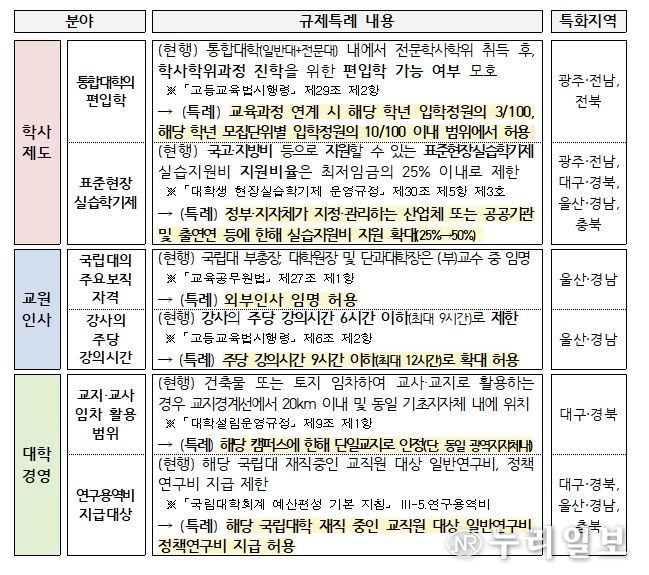 분야 규제특례 내용 특화지역
학사
제도
통합대학의
편입학
(현행) 통합대학(일반대+전문대) 내에서 전문학사학위 취득 후,
학사학위과정 진학을 위한 편입학 가능 여부 모호
※ 「고등교육법시행령」 제29조 제2항
→ (특례) 교육과정 연계 시 해당 학년 입학정원의 3/100,
해당 학년 모집단위별 입학정원의 10/100 이내 범위에서 허용
광주·전남,
전북
표준현장
실습학기제
(현행) 국고·지방비 등으로 지원할 수 있는 표준현장실습학기제
실습지원비 지원비율은 최저임금의 25% 이내로 제한
※ 「대학생 현장실습학기제 운영규정」 제30조 제5항 제3호
→ (특례) 정부·지자체가 지정·관리하는 산업체 또는 공공기관
및 출연연 등에 한해 실습지원비 지원 확대(25%→50%)
광주·전남,
대구·경북,
울산·경남,
충북
교원
인사
국립대의
주요보직
자격
(현행) 국립대 부총장, 대학원장 및 단과대학장은 (부)교수 중 임명
※ 「교육공무원법」 제27조 제1항
→ (특례) 외부인사 임명 허용
울산·경남
강사의
주당
강의시간
(현행) 강사의 주당 강의시간 6시간 이하(최대 9시간)로 제한
※ 「고등교육법시행령」 제6조 제2항
→ (특례) 주당 강의시간 9시간 이하(최대 12시간)로 확대 허용
울산·경남
대학
경영
교지·교사
임차 활용
범위
(현행) 건축물 또는 토지 임차하여 교사·교지로 활용하는
경우 교지경계선에서 20km 이내 및 동일 기초지자체 내에 위치
※ 「대학설립운영규정」 제9조 제1항
→ (특례) 해당 캠퍼스에 한해 단일교지로 인정(단, 동일 광역지자체내)
대구·경북
연구용역비
지급대상
(현행) 해당 국립대 재직중인 교직원 대상 일반연구비, 정책
연구비 지급 제한
※ 「국립대학회계 예산편성 기본 지침」 III-5.연구용역비
→ (특례) 해당 국립대학 재직 중인 교직원 대상 일반연구비
정책연구비 지급 허용
대구·경북,
울산·경남,
충북
NR 누리일보